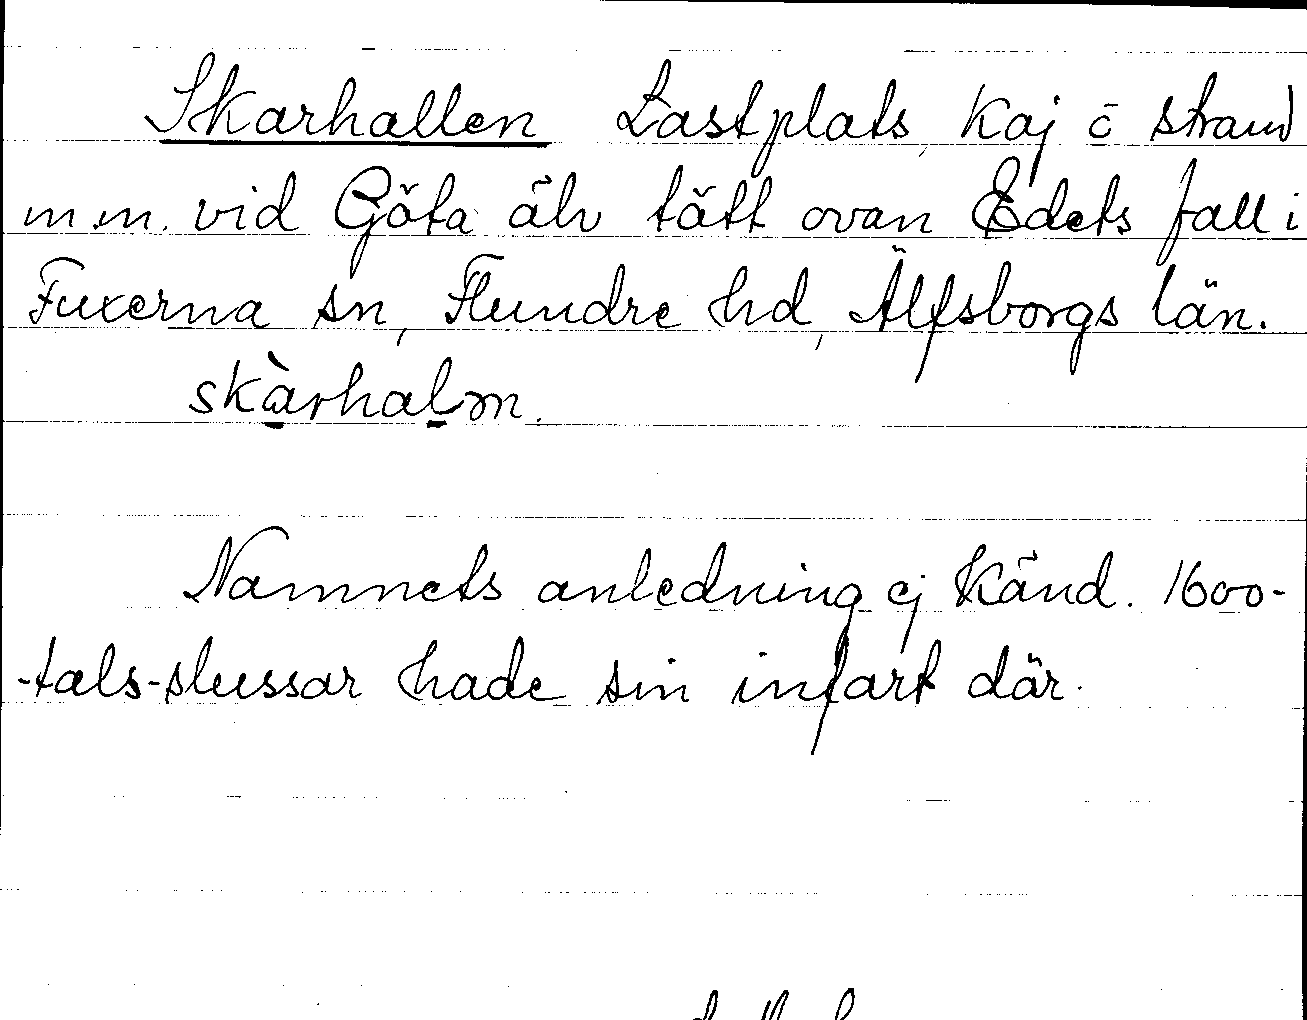 Skarhallen Lastplats, Kaj o strand
m.m. vid Göta älv tätt ovan Edets fall i
Fuxerna sn, Flundre hd, Älfsborgs län.
skàrhaln.
Namnets anledning ej känd. 1600-
-tals-slussar hade sin infart där.